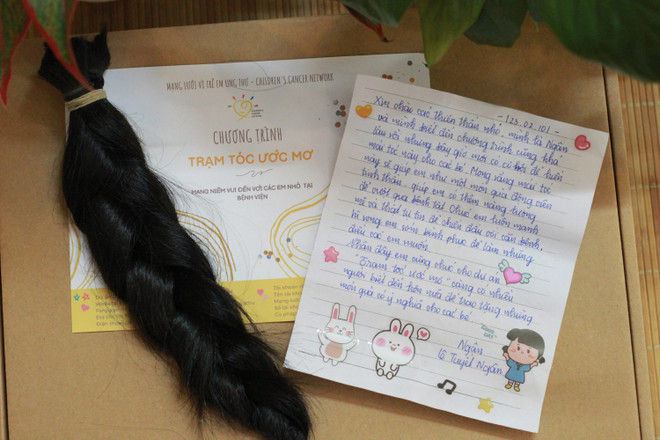 MẠNG LƯỚI VÌ TRẺ EM UNG THƯ - CHILDREN'S CANCER NETWORK
CHƯƠNG TRÌNH
TRẠM TÓC ƯỚC MƠ
MANG NIỀM VUI ĐẾN VỚI CÁC EM NHỎ TẠI
BỆNH VIỆN
-123.02.101-
Xin chào các thiên thần nhỏ, mình là Ngân
và mình biết đến chương trình cũng khá
lâu rồi nhưng bây giờ mới có cơ hội để
mái tóc này cho các bé. Mong rằng mái tóc
này sẽ giúp em như một món quà động viên
tinh thần, giúp em có thêm năng lượng
để vượt qua bệnh tật. Chúc em luôn mạnh
mẽ và thật tự tin để chiến đấu với căn bệnh,
hi vọng em sớm bình phục để làm những
điều các em muốn.
Nhân đây em cũng chúc cho dự án
"Trạm tóc ước mơ" càng có nhiều
người biết đến hơn nữa để trao tặng những
món quà có ý nghĩa cho các bé.
Ngân
Tuyết Ngân